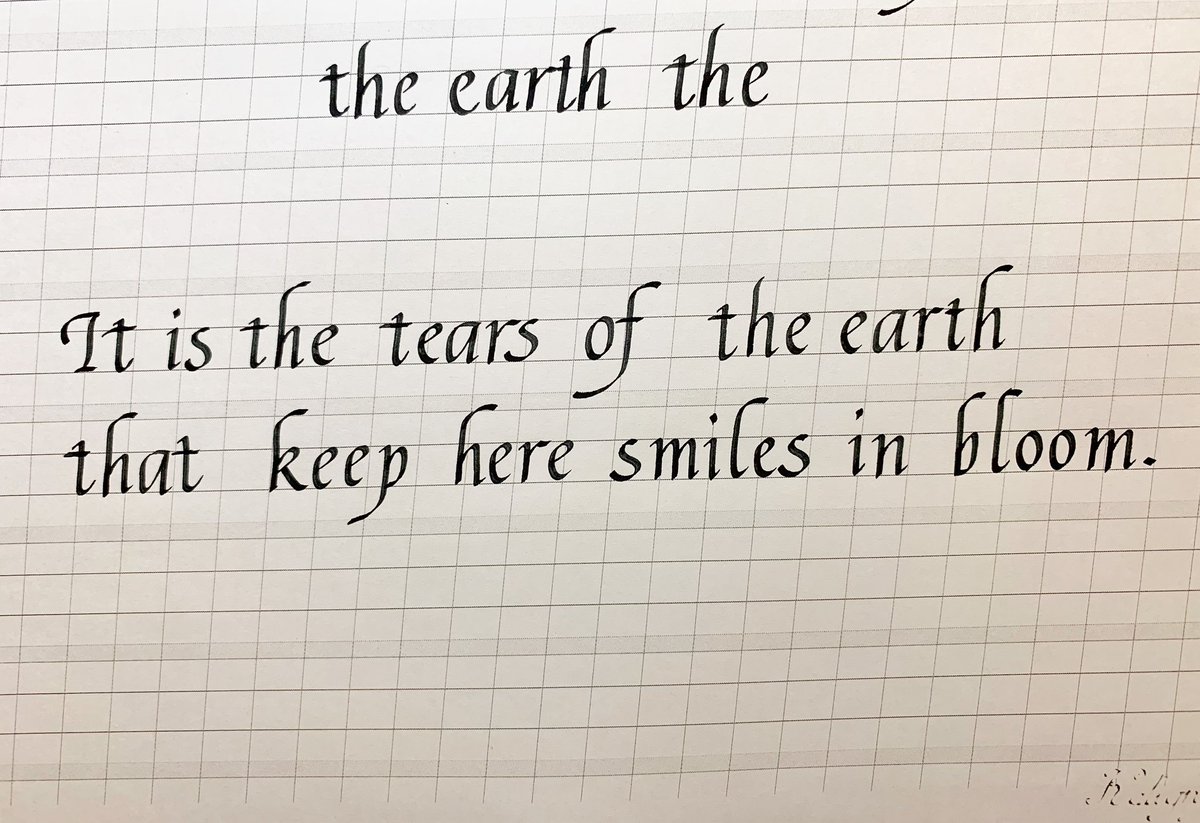 the earth the
It is the tears of the earth
that keep here smiles in bloom.